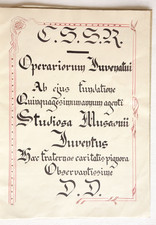 C. S. S. R.
Operariorum Iuvenalui
Ab ejus fundatione
Quinquagesimum annum agenti
Studiosa Musaonii
Iuventus
Hæc fraternæ caritatis pignora
Observantissime
D. D.